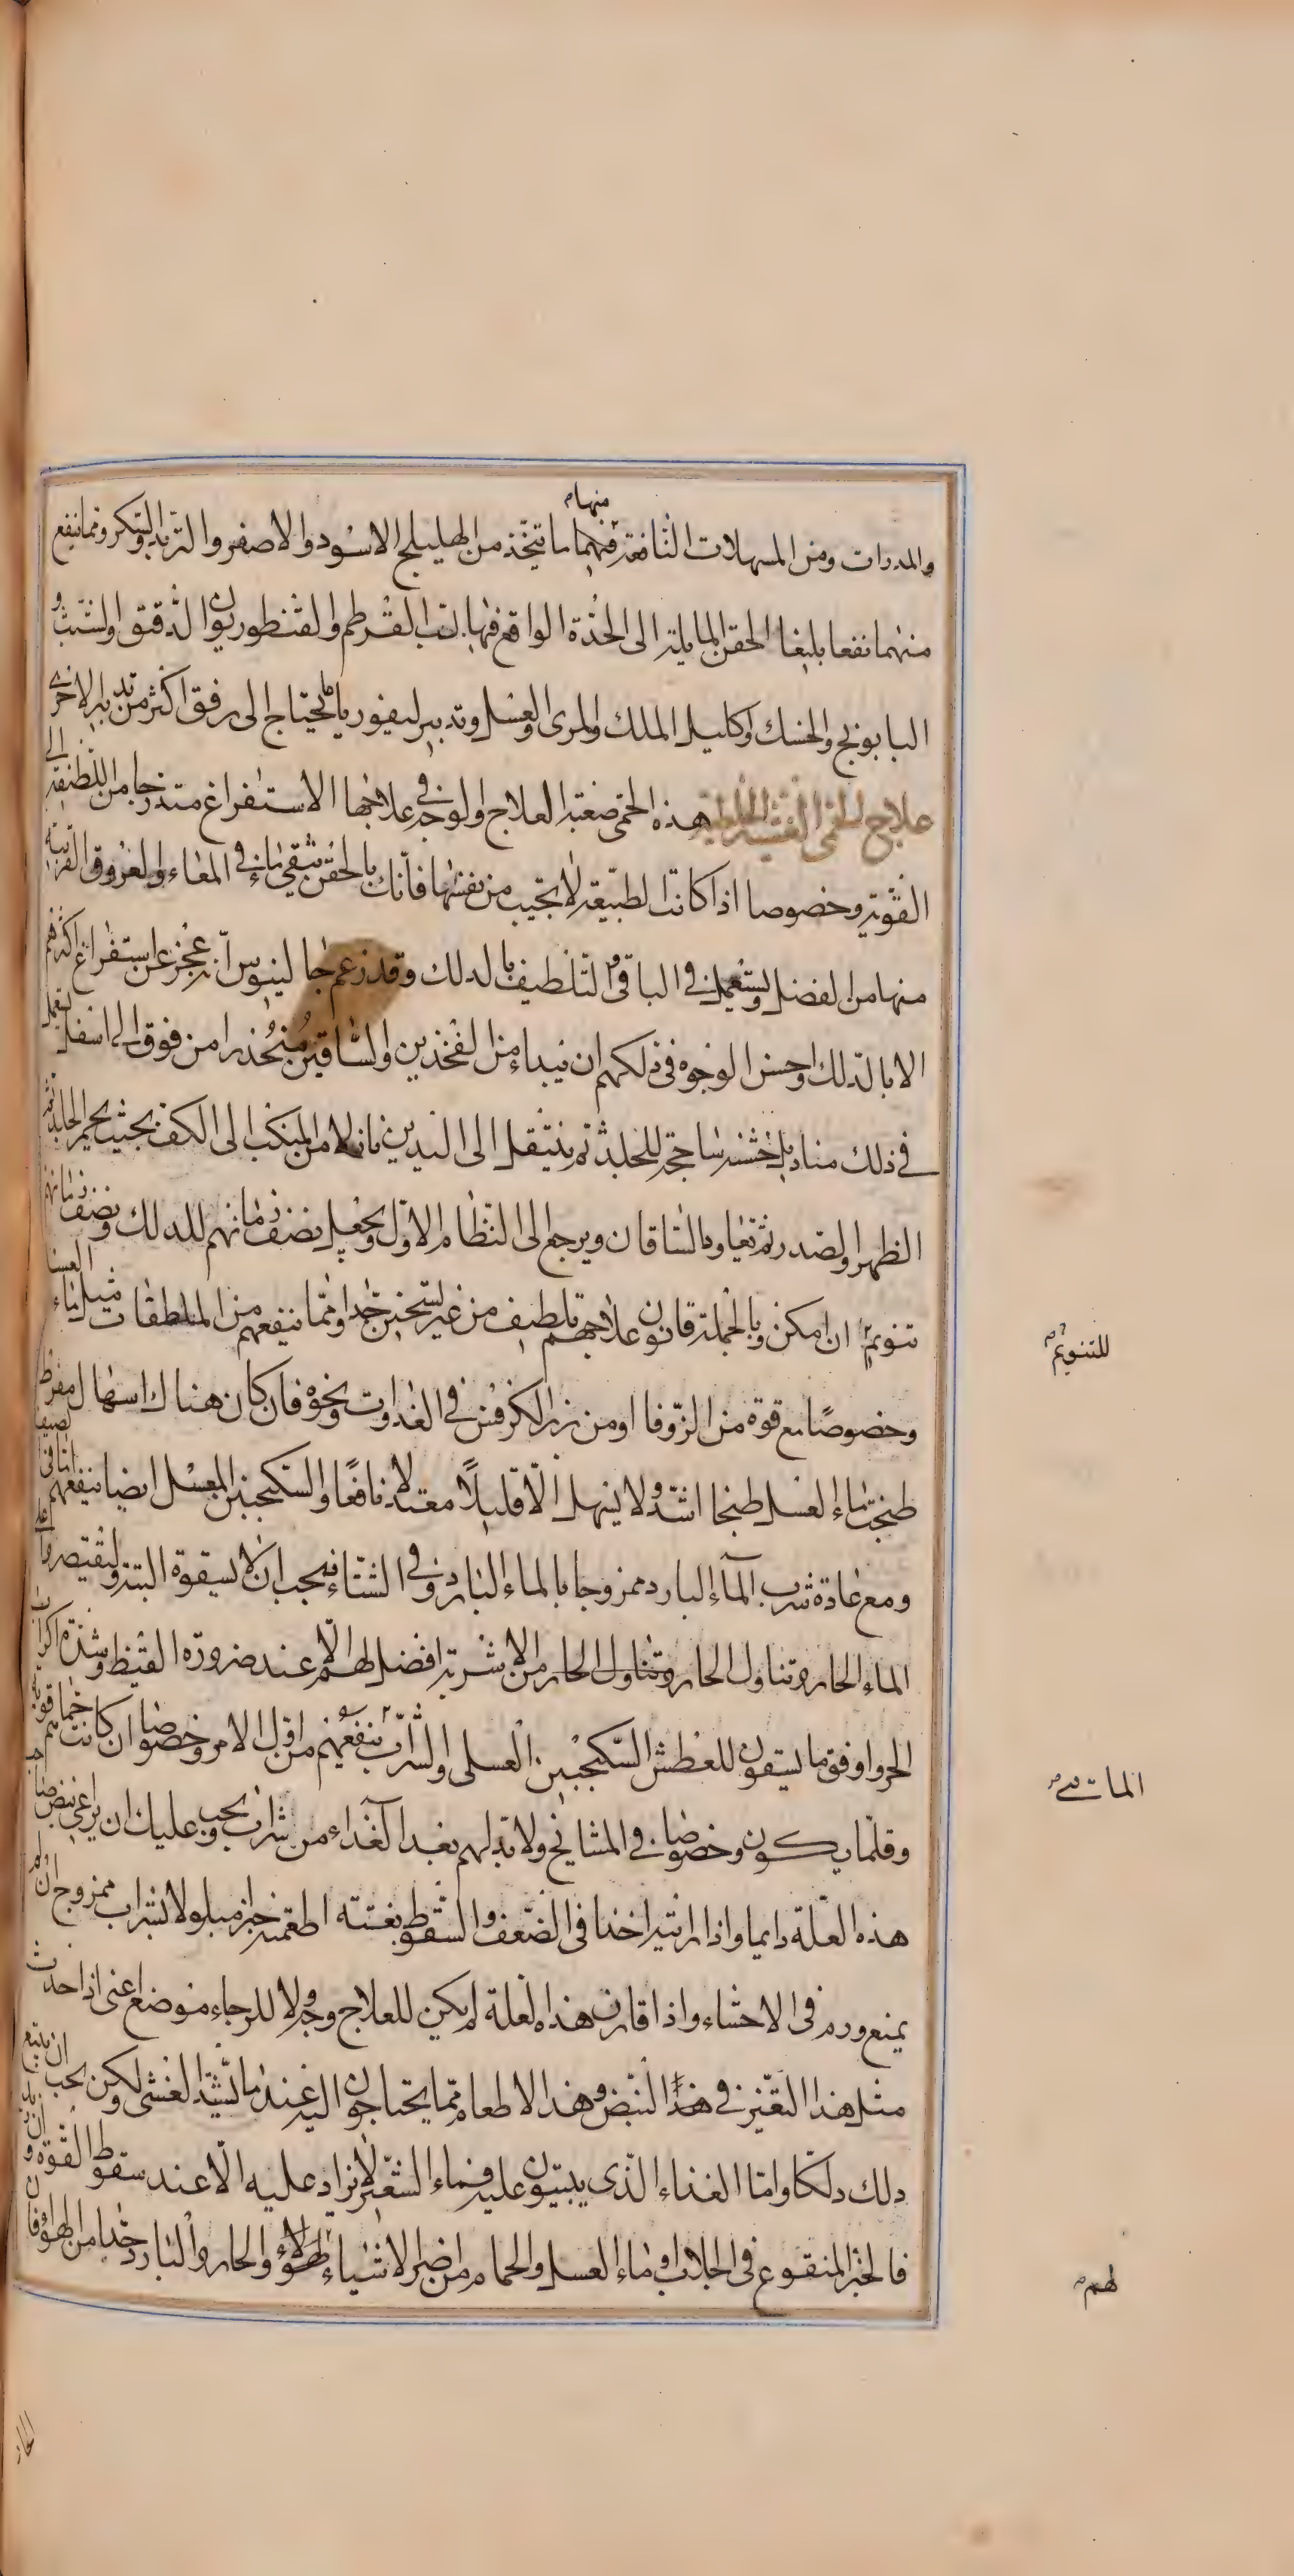 منها
والمدرات ومن المسهلات النافعة فيهما ما يتخذ من الهليلج الاسود والاصفر والتربد والسكر ومما ينفع
منهما نفعا بليغا الحقن المايلة الى الحدة الواقع فيها لب القرطم والقنطوريون الدقيق والشبث و
البابونج والحسك واكليل الملك والمرى والعسل وتدبير ليفوريا يحتاج الى رفق اكثر من تدبير الاخرى
علاج الحمى الغشية الخلطية هذه الحمى صعبة العلاج والوجه فى علاجها الاستفراغ متدرجا من اللطيفة الى
القوية وخصوصا اذا كانت الطبيعة لا تجيب من نفسها فانك بالحقن تنقى ما فى المعاء والعروق القريبة
منها من الفضل ويستعمل فى الباقى التلطيف بالدلك وقد زعم جالينوس انه عجز عن استفراغ اكثرهم
الا بالدلك واحسن الوجوه فى ذلكهم ان يبداء من الفخذين والساقين منحدرا من فوق الى اسفل يستعمل
فى ذلك مناديل خشنة ساحجة للجلد ثم ينتقل الى اليدين نازلا من المنكب الى الكف بحيث يحمر الجلد ثم
الظهر والصدر ثم تعاود الساقان ويرجع الى النظام الاول ويجعل نصف زمانهم للدلك ونصف زمانهم
تنويم ان امكن وبالجملة قانون علاجهم تلطيف من غير تسخين جدا ومما ينفعهم من الملطفات مثل ماء العسل
للتنويم
وخصوصا مع قوة من الزوفا او من بزر الكرفس فى الغدوات ونحوه فان كان هناك اسهال مفرط
طبخت ماء العسل طبخا اشد ولا يسهل الا قليلا معتدلا نافعا والسكنجبين المعسل ايضا ينفعهم اما فى الصيف
ومع عادة شرب الماء البارد ممزوجا بالماء البارد وفى الشتاء فيجب ان لا يسقوه البتة وليقتصروا على
الماء الحار وتناول الحار وتناول الحار من الاشربة افضل لهم الا عند ضرورة القيظ وشدة كرب
الحر واوفق ما يسقون للعطش السكنجبين العسلى والشراب ينفعهم من اول الامر وخصوصا ان كانت حماتهم قوية
المات
وقلما يكون وخصوصا فى المشايخ ولا بد لهم بعد الغذاء من شراب يجب وعليك ان يراعى نبض صاحب
هذه العلة دايما واذا رايته اخذا فى الضعف والسقوط بغتة اطعمته خبز مبلولا بشراب ممزوج ان لم
يمنع ورم فى الاحشاء واذا قارن هذه العلة لم يكن للعلاج وجه ولا للرجاء موضع اعنى اذا حدث
مثل هذا التغير فى هذا النبض وهذا الاطعام مما يحتاجون اليه عند ما يشتد الغشى ولكن يجب ان يتبع
ذلك دلكا واما الغذاء الذى يبيتون عليه فماء الشعير لا يزاد عليه الا عند سقوط القوة و
فالخبز المنقوع فى الجلاب او ماء العسل والحمام من اضر الاشياء لهؤلاء والحار والبارد جدا من الهواء فان
لهم
الحار